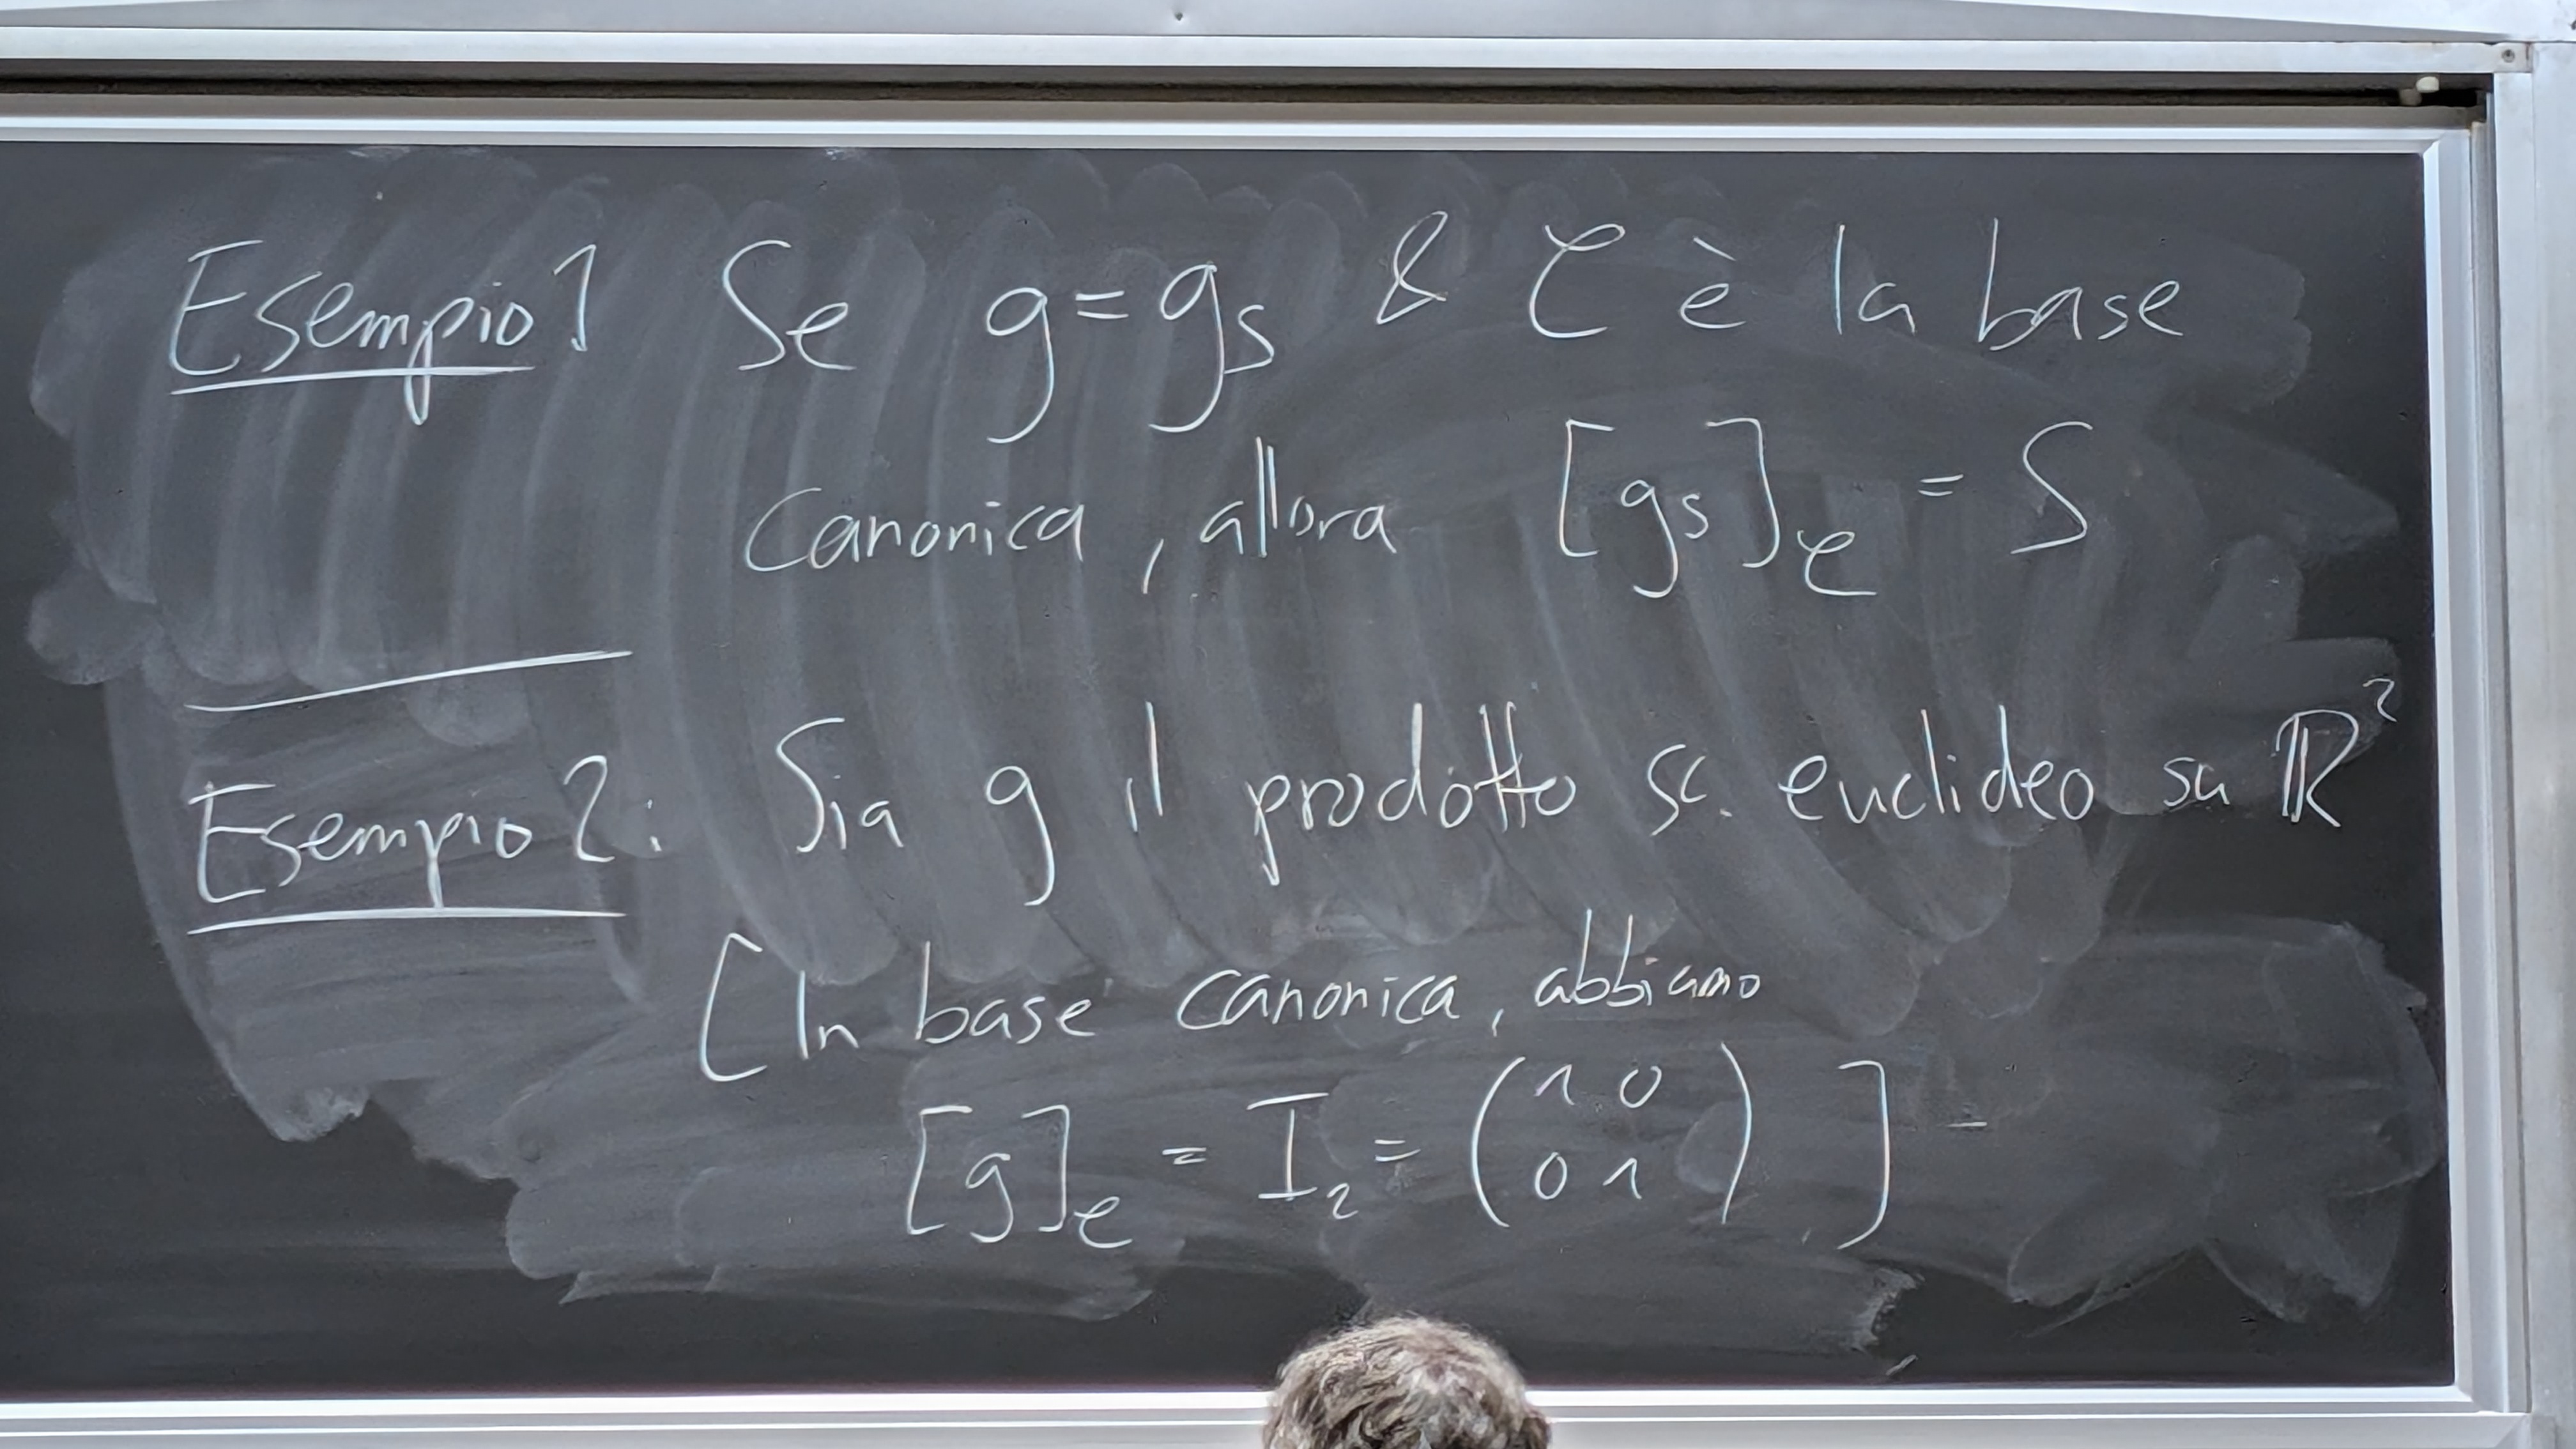 Esempio 1 Se g = g_S & 𝒞 è la base
canonica, allora [g_S]_𝒞 = S
Esempio 2: Sia g il prodotto sc. euclideo su ℝ²
[In base canonica, abbiamo
[g]_𝒞 = I₂ = (1 0
0 1)]